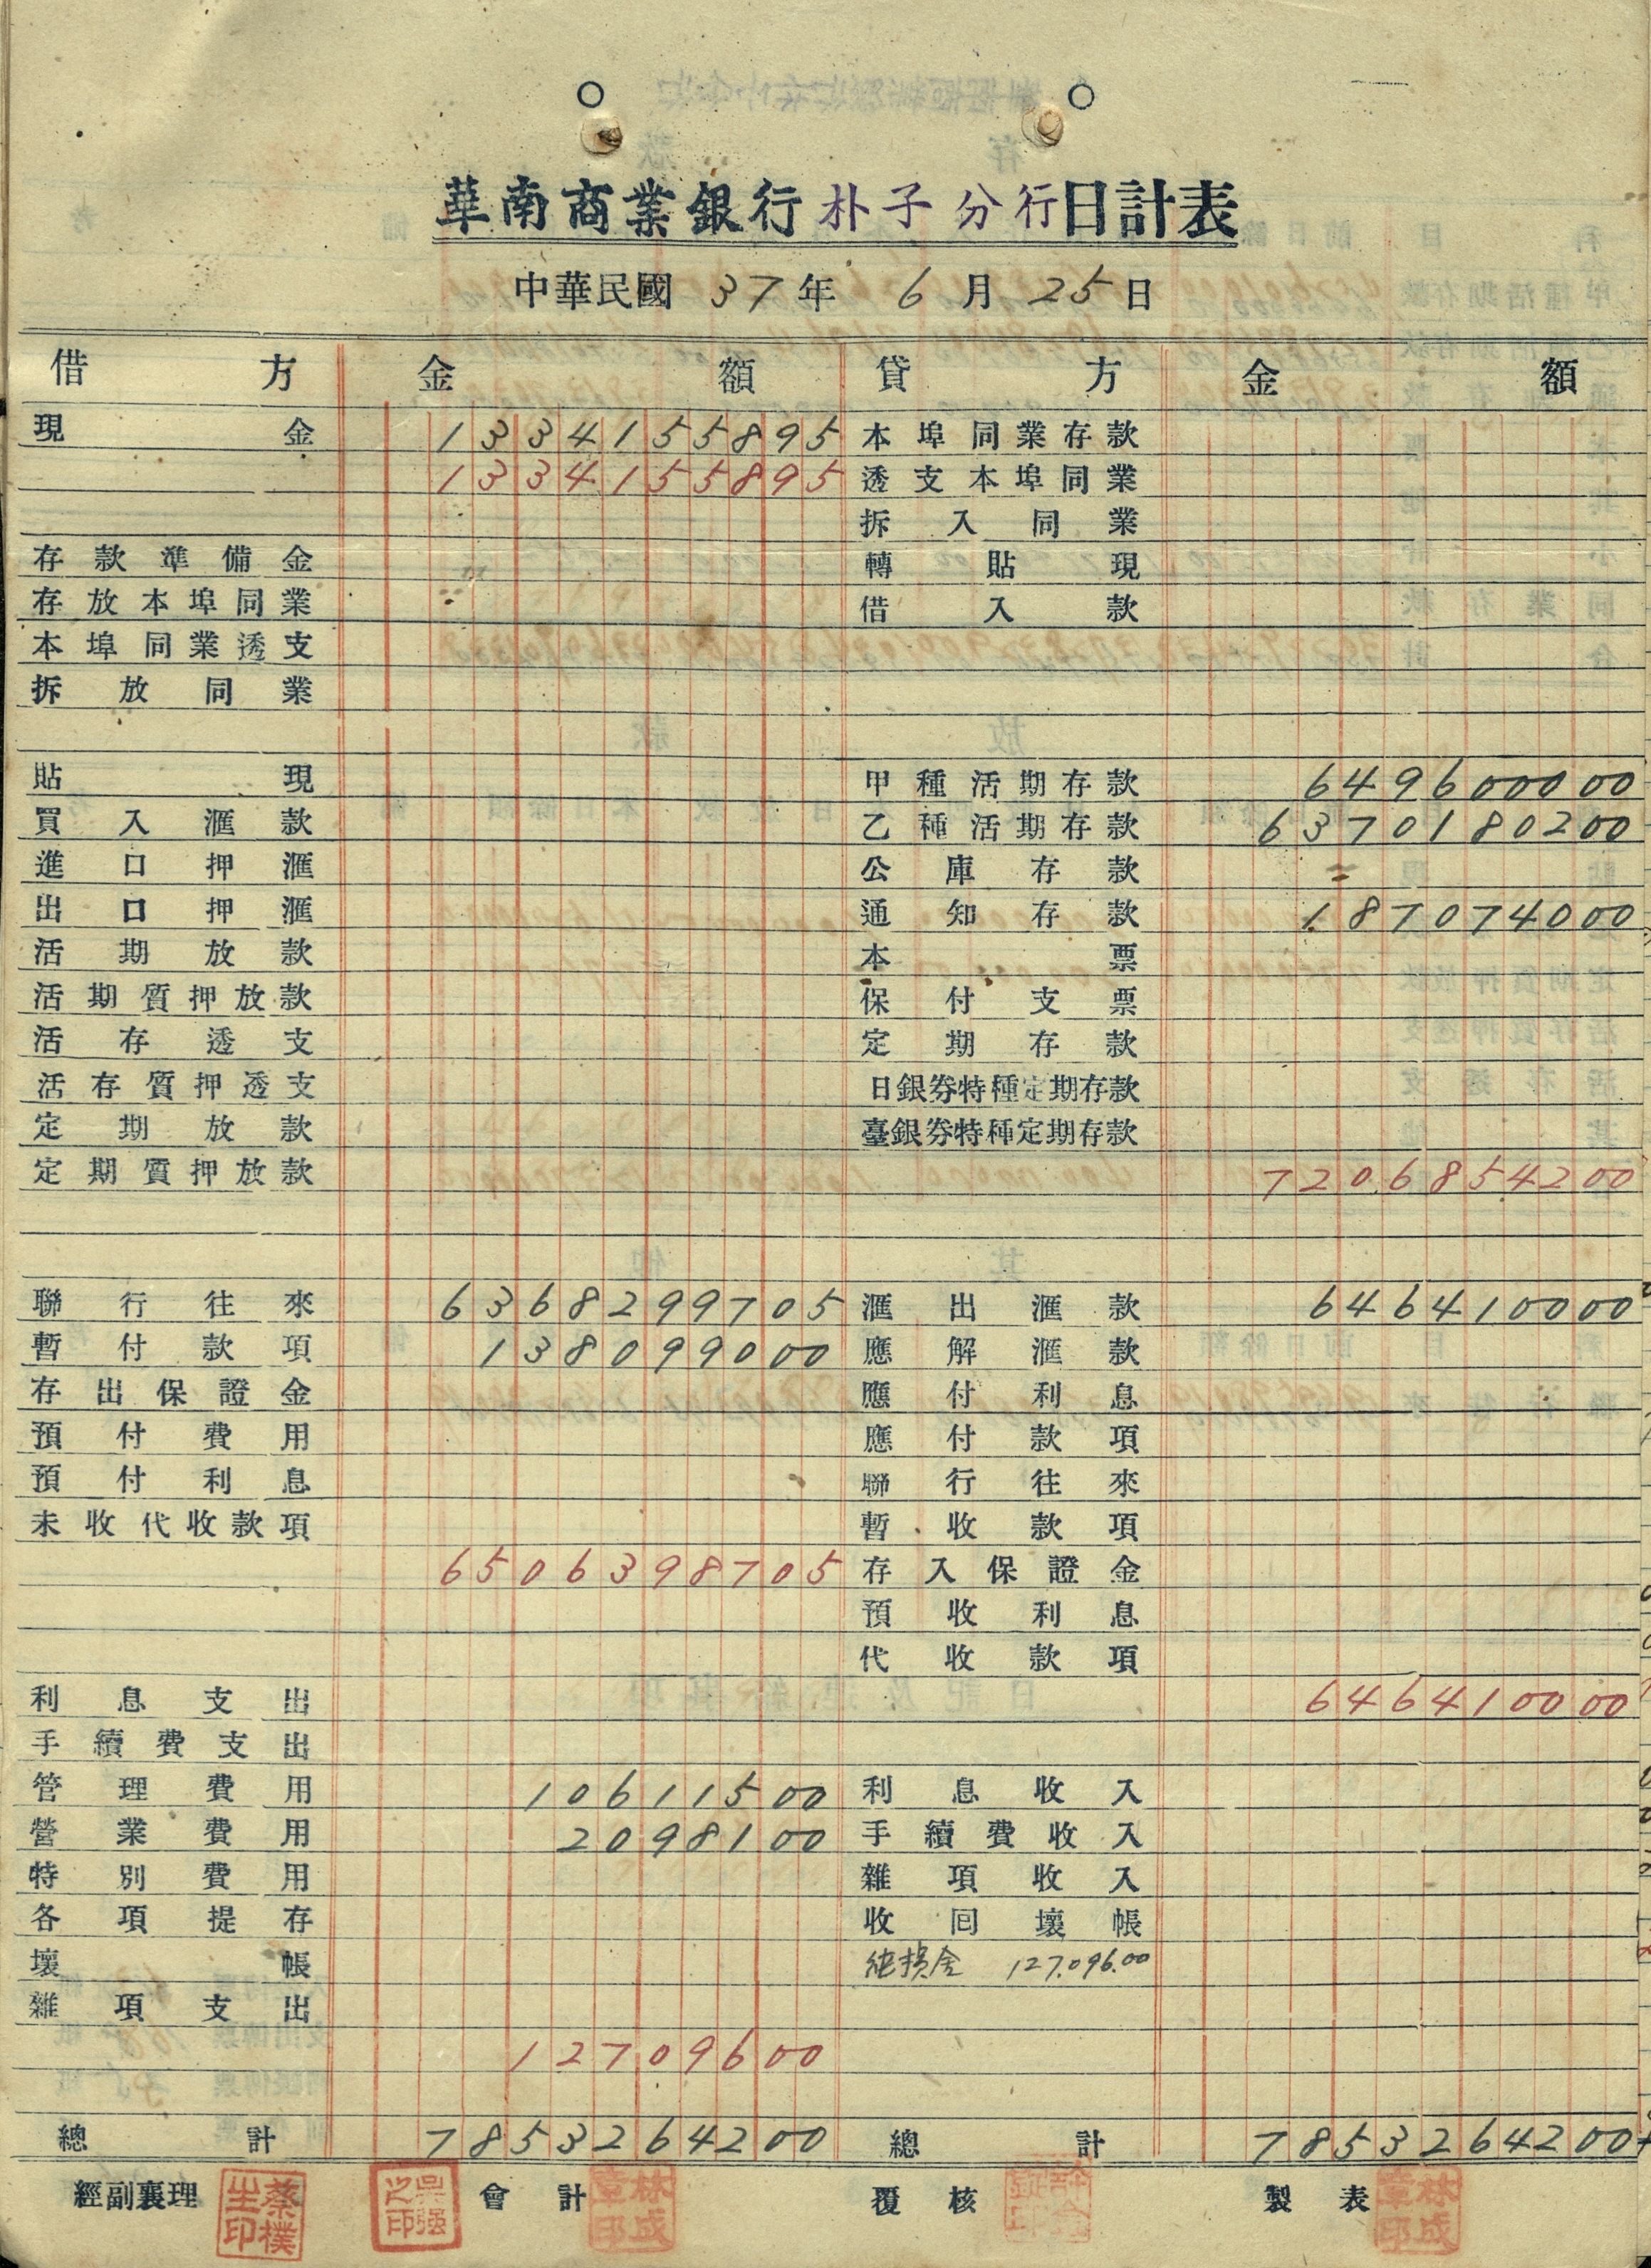 華南商業銀行朴子分行日計表
中華民國 37 年 6 月 25 日
借方 金額 貸方 金額
現金 1334155895 本埠同業存款
1334155895 透支本埠同業
拆入同業
存款準備金 轉貼現
存放本埠同業 借入款
本埠同業透支
拆放同業
貼現 甲種活期存款 649600000
買入滙款 乙種活期存款 6370180200
進口押滙 公庫存款
出口押滙 通知存款 187074000
活期放款 本票
活期質押放款 保付支票
活存透支 定期存款
活存質押透支 日銀券特種定期存款
定期放款 臺銀券特種定期存款
定期質押放款 7206854200
聯行往來 6368299705 滙出滙款 646410000
暫付款項 138099000 應解滙款
存出保證金 應付利息
預付費用 應付款項
預付利息 聯行往來
未收代收款項 暫收款項
6506398705 存入保證金
預收利息
代收款項
利息支出 646410000
手續費支出
管理費用 10611500 利息收入
營業費用 2098100 手續費收入
特別費用 雜項收入
各項提存 收回壞帳
壞帳 純損金 127.096.00
雜項支出
12709600
總計 7853264200 總計 7853264200
經副襄理 蔡樸生印 吳强之印 會計 林成章印 覆核 製表 林成章印